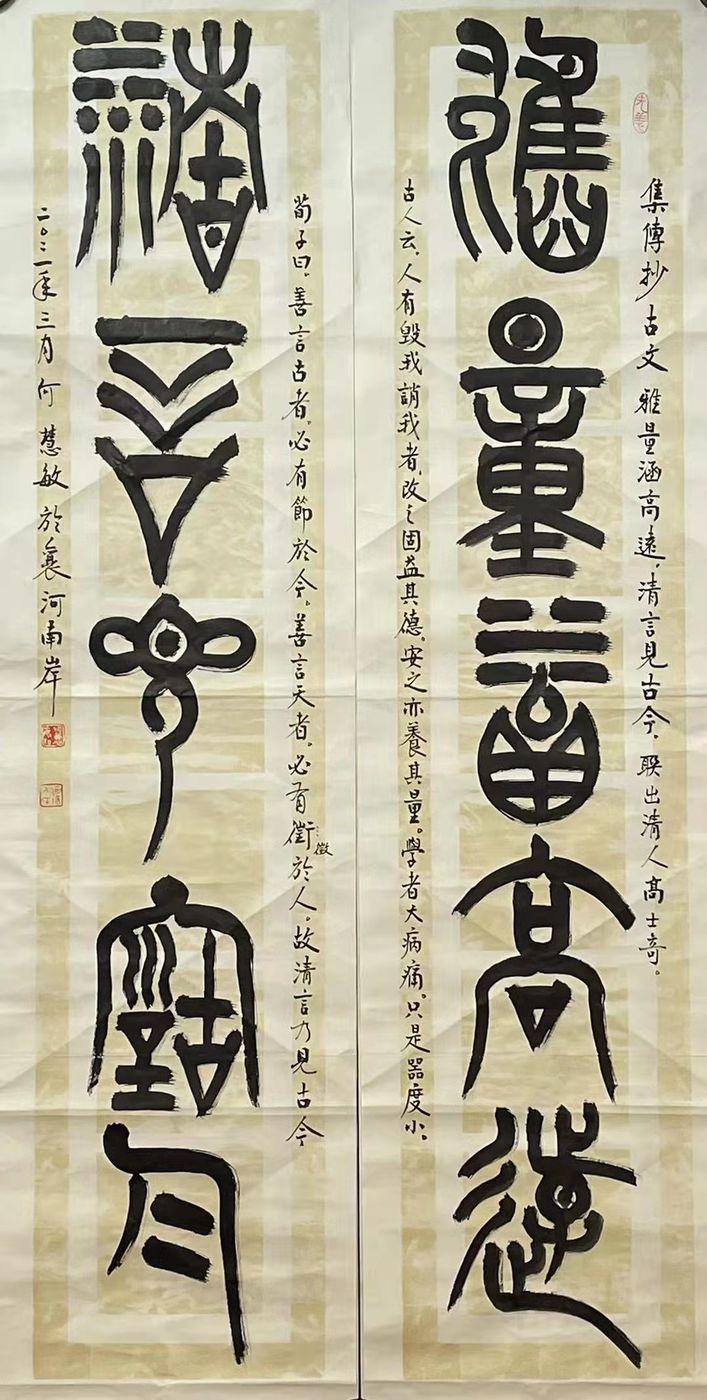 集傳抄古文 雅量涵高遠，清言見古今，聯出清人高士奇。
雅量涵高遠
古人云，人有毀我誚我者，改之固益其德。安之亦養其量。學者大病痛。只是器度小。
荀子曰。善言古者。必有節於今。善言天者。必有徵於人。故清言乃見古今
徵
清言見古今
二〇二一年三月何慧敏於襄河南岸